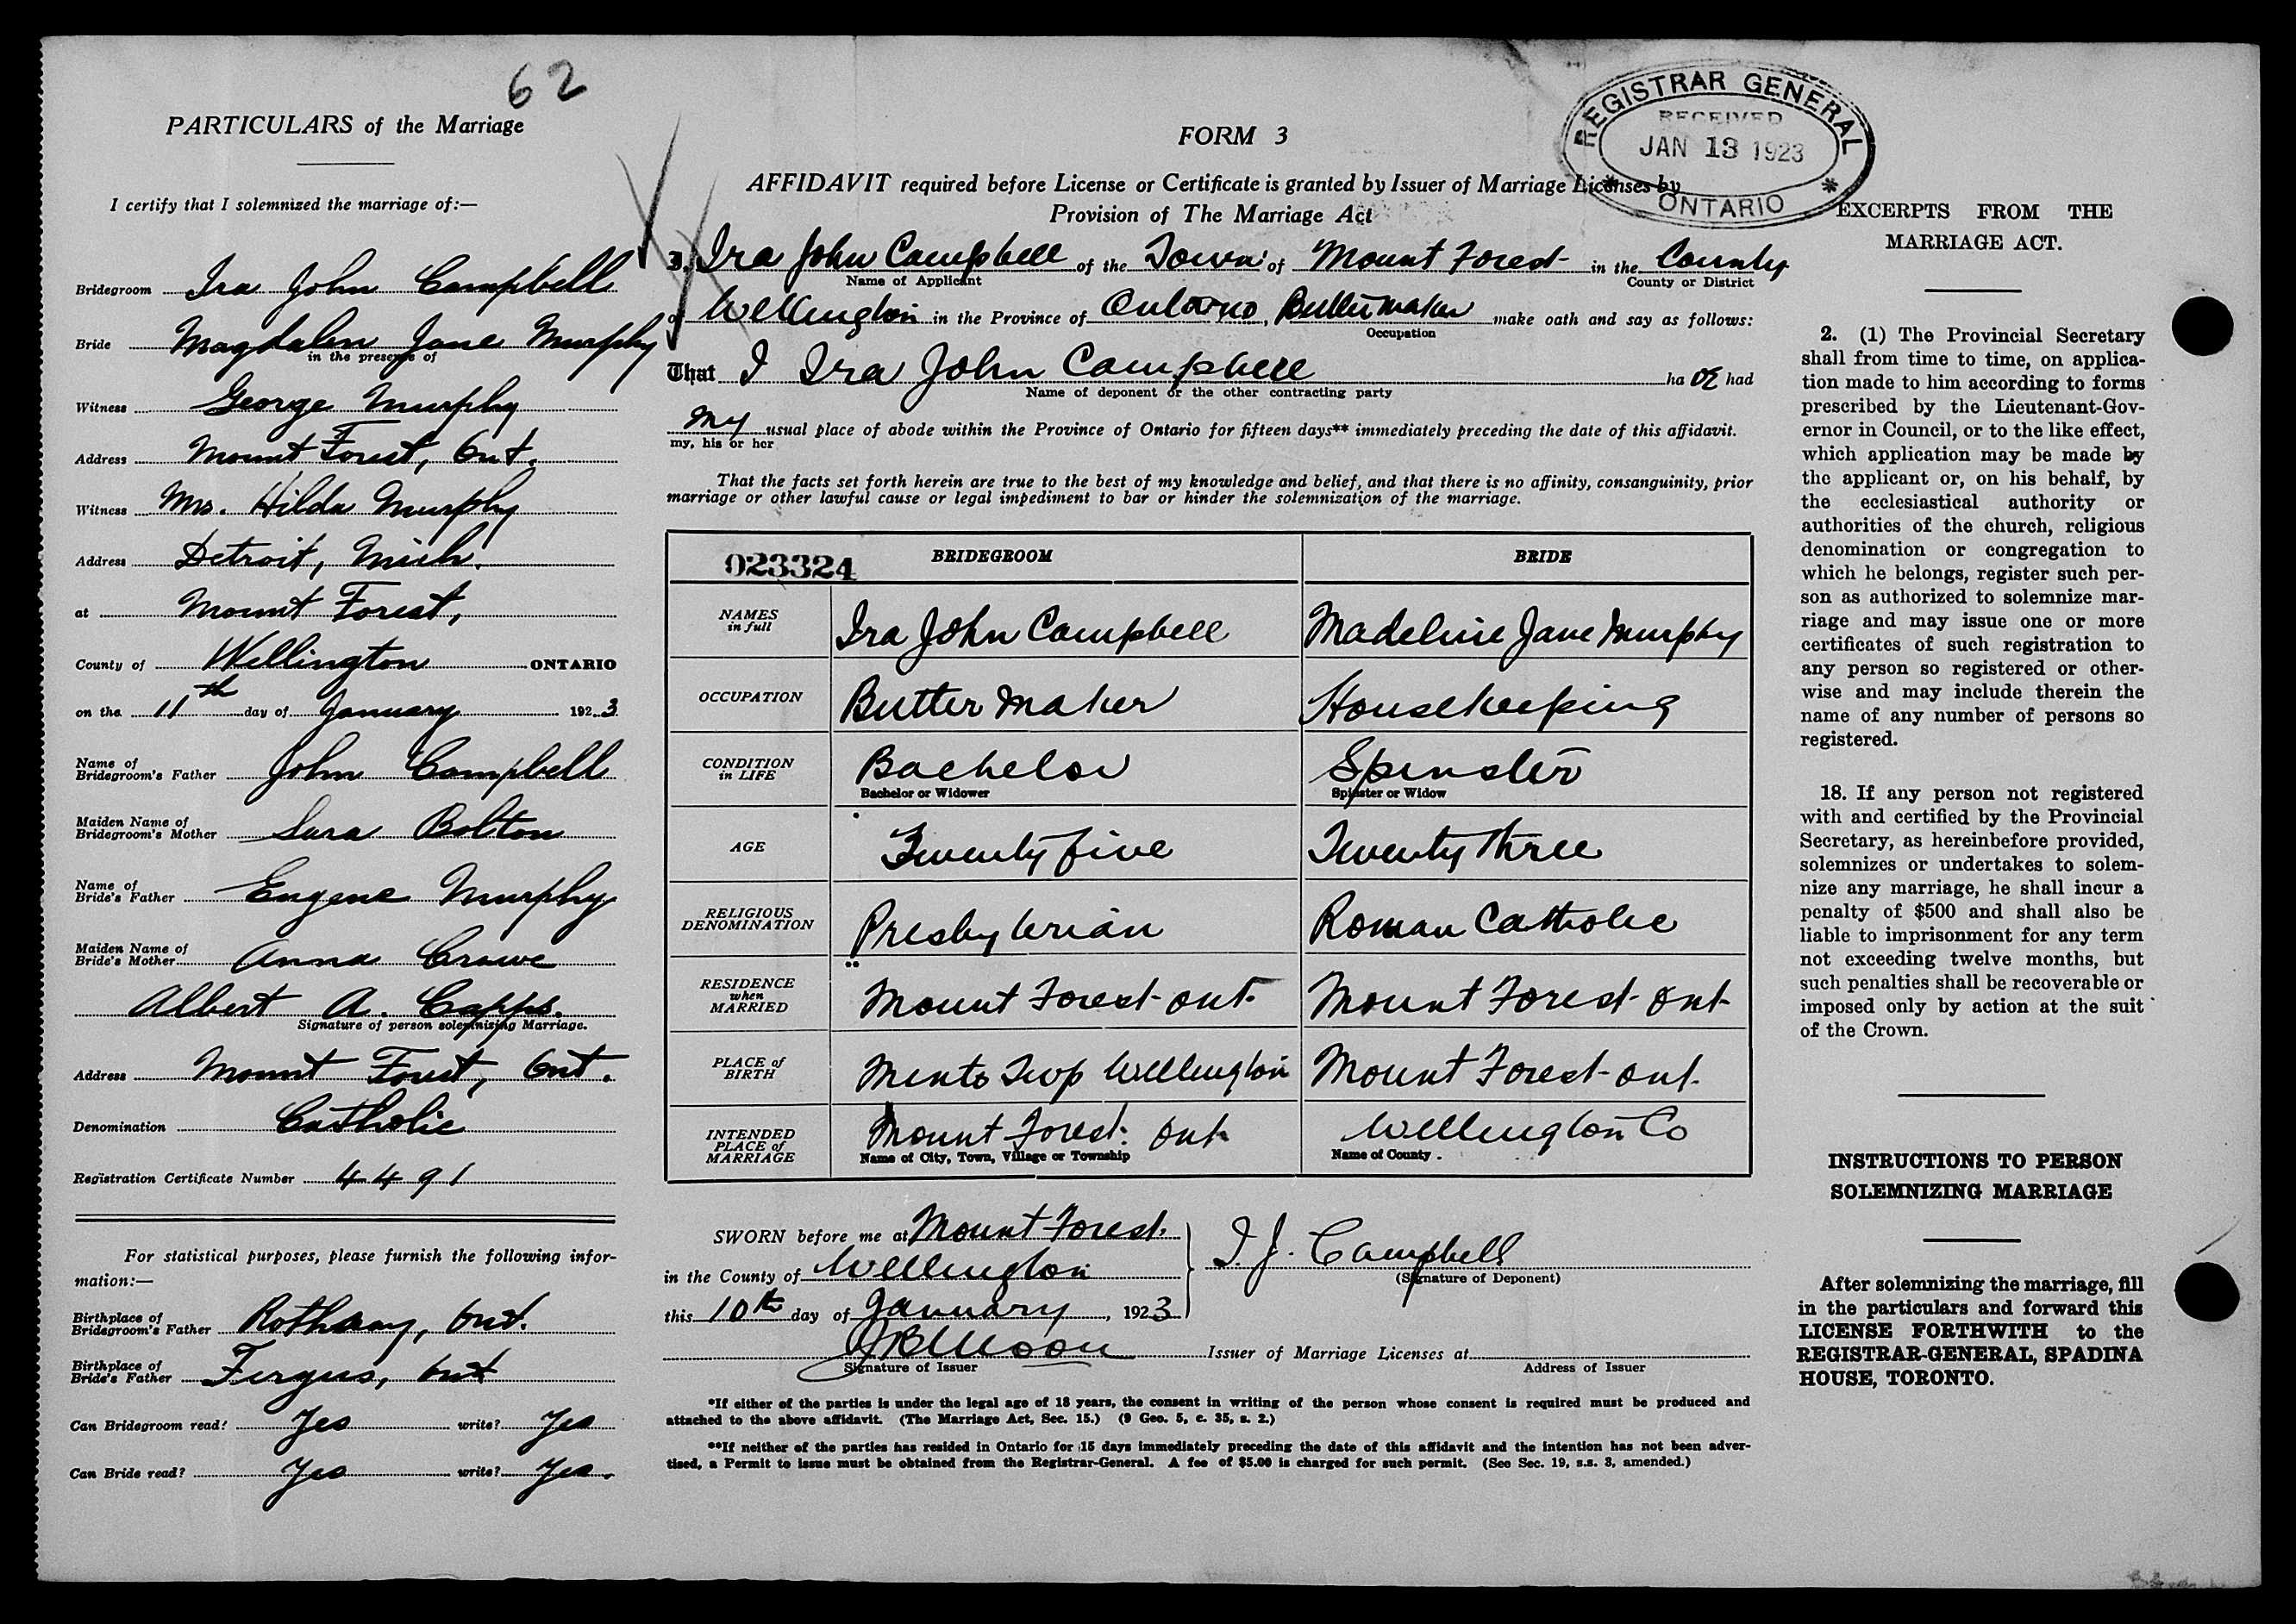 62
PARTICULARS of the Marriage
I certify that I solemnized the marriage of:—
Bridegroom Ira John Campbell
Bride Magdalen Jane Murphy
in the presence of
Witness George Murphy
Address Mount Forest, Ont.
Witness Mrs. Hilda Murphy
Address Detroit, Mich.
at Mount Forest,
County of Wellington ONTARIO
on the 11th day of January 1923
Name of
Bridegroom's Father John Campbell
Maiden Name of
Bridegroom's Mother Sara Bolton
Name of
Bride's Father Eugene Murphy
Maiden Name of
Bride's Mother Anna Crowe
Albert A. Capps.
Signature of person solemnizing Marriage.
Address Mount Forest, Ont.
Denomination Catholic
Registration Certificate Number 4491
For statistical purposes, please furnish the following infor-
mation:—
Birthplace of
Bridegroom's Father Rothsay, Ont.
Birthplace of
Bride's Father Fergus, Ont
Can Bridegroom read? Yes write? Yes
Can Bride read? Yes write? Yes.
FORM 3
AFFIDAVIT required before License or Certificate is granted by Issuer of Marriage Licenses by
Provision of The Marriage Act
I, Ira John Campbell of the Town of Mount Forest in the County
Name of Applicant County or District
of Wellington in the Province of Ontario, Butter maker make oath and say as follows:
Occupation
That I Ira John Campbell ha ve had
Name of deponent or the other contracting party
my usual place of abode within the Province of Ontario for fifteen days** immediately preceding the date of this affidavit.
my, his or her
That the facts set forth herein are true to the best of my knowledge and belief, and that there is no affinity, consanguinity, prior
marriage or other lawful cause or legal impediment to bar or hinder the solemnization of the marriage.
023324 BRIDEGROOM BRIDE
NAMES
in full Ira John Campbell Madeline Jane Murphy
OCCUPATION Butter Maker Housekeeping
CONDITION
in LIFE Bachelor Spinster
Bachelor or Widower Spinster or Widow
AGE Twenty five Twenty three
RELIGIOUS
DENOMINATION Presbyterian Roman Catholic
RESIDENCE
when
MARRIED Mount Forest Ont. Mount Forest Ont
PLACE of
BIRTH Minto Twp Wellington Mount Forest Ont.
INTENDED
PLACE of
MARRIAGE Mount Forest. Ont Wellington Co
Name of City, Town, Village or Township Name of County.
SWORN before me at Mount Forest.
in the County of Wellington
this 10th day of January, 1923
I. J. Campbell
(Signature of Deponent)
Issuer of Marriage Licenses at
Signature of Issuer Address of Issuer
*If either of the parties is under the legal age of 18 years, the consent in writing of the person whose consent is required must be produced and
attached to the above affidavit. (The Marriage Act, Sec. 15.) (9 Geo. 5, c. 35, s. 2.)
**If neither of the parties has resided in Ontario for 15 days immediately preceding the date of this affidavit and the intention has not been adver-
tised, a Permit to issue must be obtained from the Registrar-General. A fee of $5.00 is charged for such permit. (See Sec. 19, s.s. 3, amended.)
REGISTRAR GENERAL
RECEIVED
JAN 13 1923
* ONTARIO *
EXCERPTS FROM THE
MARRIAGE ACT.
2. (1) The Provincial Secretary
shall from time to time, on applica-
tion made to him according to forms
prescribed by the Lieutenant-Gov-
ernor in Council, or to the like effect,
which application may be made by
the applicant or, on his behalf, by
the ecclesiastical authority or
authorities of the church, religious
denomination or congregation to
which he belongs, register such per-
son as authorized to solemnize mar-
riage and may issue one or more
certificates of such registration to
any person so registered or other-
wise and may include therein the
name of any number of persons so
registered.
18. If any person not registered
with and certified by the Provincial
Secretary, as hereinbefore provided,
solemnizes or undertakes to solem-
nize any marriage, he shall incur a
penalty of $500 and shall also be
liable to imprisonment for any term
not exceeding twelve months, but
such penalties shall be recoverable or
imposed only by action at the suit
of the Crown.
INSTRUCTIONS TO PERSON
SOLEMNIZING MARRIAGE
After solemnizing the marriage, fill
in the particulars and forward this
LICENSE FORTHWITH to the
REGISTRAR-GENERAL, SPADINA
HOUSE, TORONTO.